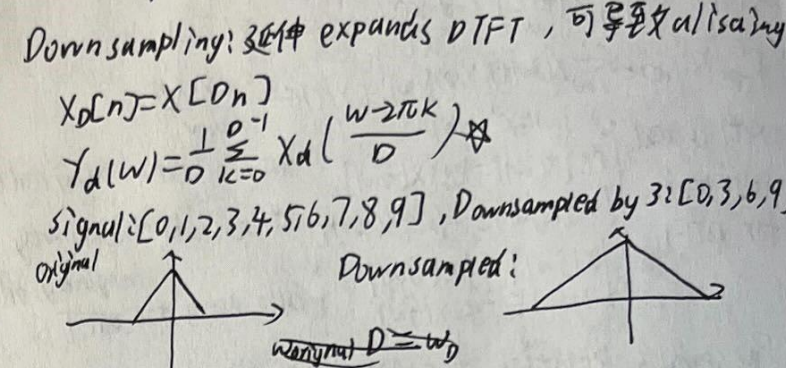 Downsampling: 延伸 expands DTFT, 可导致 alisaing
X_D[n]=X[Dn]
Y_d(w)=\frac{1}{D}\sum_{k=0}^{D-1} X_d(\frac{w-2πk}{D}) ☆
signal:[0,1,2,3,4,5,6,7,8,9], Downsampled by 3:[0,3,6,9]
original Downsampled:
D = w_D